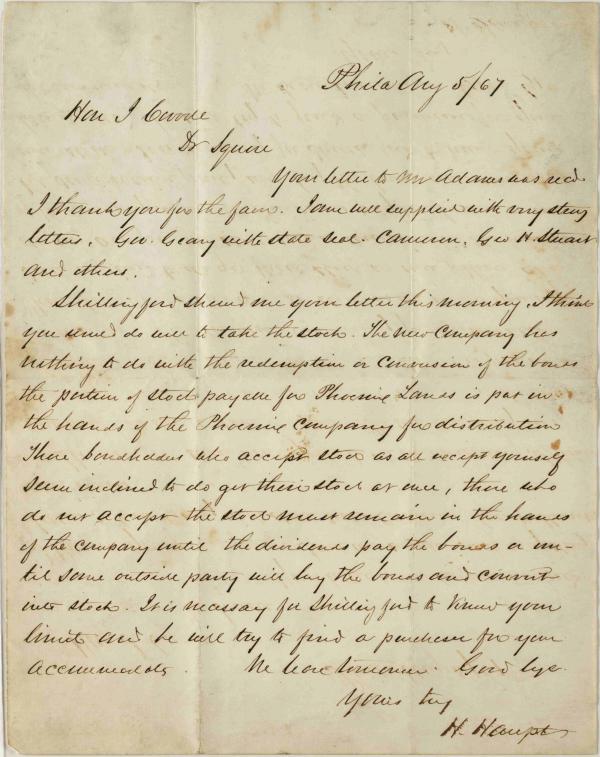 Phila Aug 5/67
Hon J Covode
Dr Squire
Your letter to Mr Adams was recd.
I thank you for the favor. I am well supplied with very strong
letters. Gov. Geary with state seal. Cameron, Geo H. Stuart
and others.
Shillingford showed me your letter this morning. I think
you would do well to take the stock. The new company has
nothing to do with the redemption or conversion of the bonds
the portion of stock payable for Phoenix Lands is put in
the hands of the Phoenix Company for distribution
Those bondholders who accept stock as all except yourself
seem inclined to do get their stock at once, those who
do not accept the stock must remain in the hands
of the company until the dividends pay the bonds or un-
til some outside party will buy the bonds and convert
into stock. It is necessary for Shillingford to know your
limit and he will try to find a purchaser for your
We leave tomorrow. Good bye.
Yours try
H. Haupt